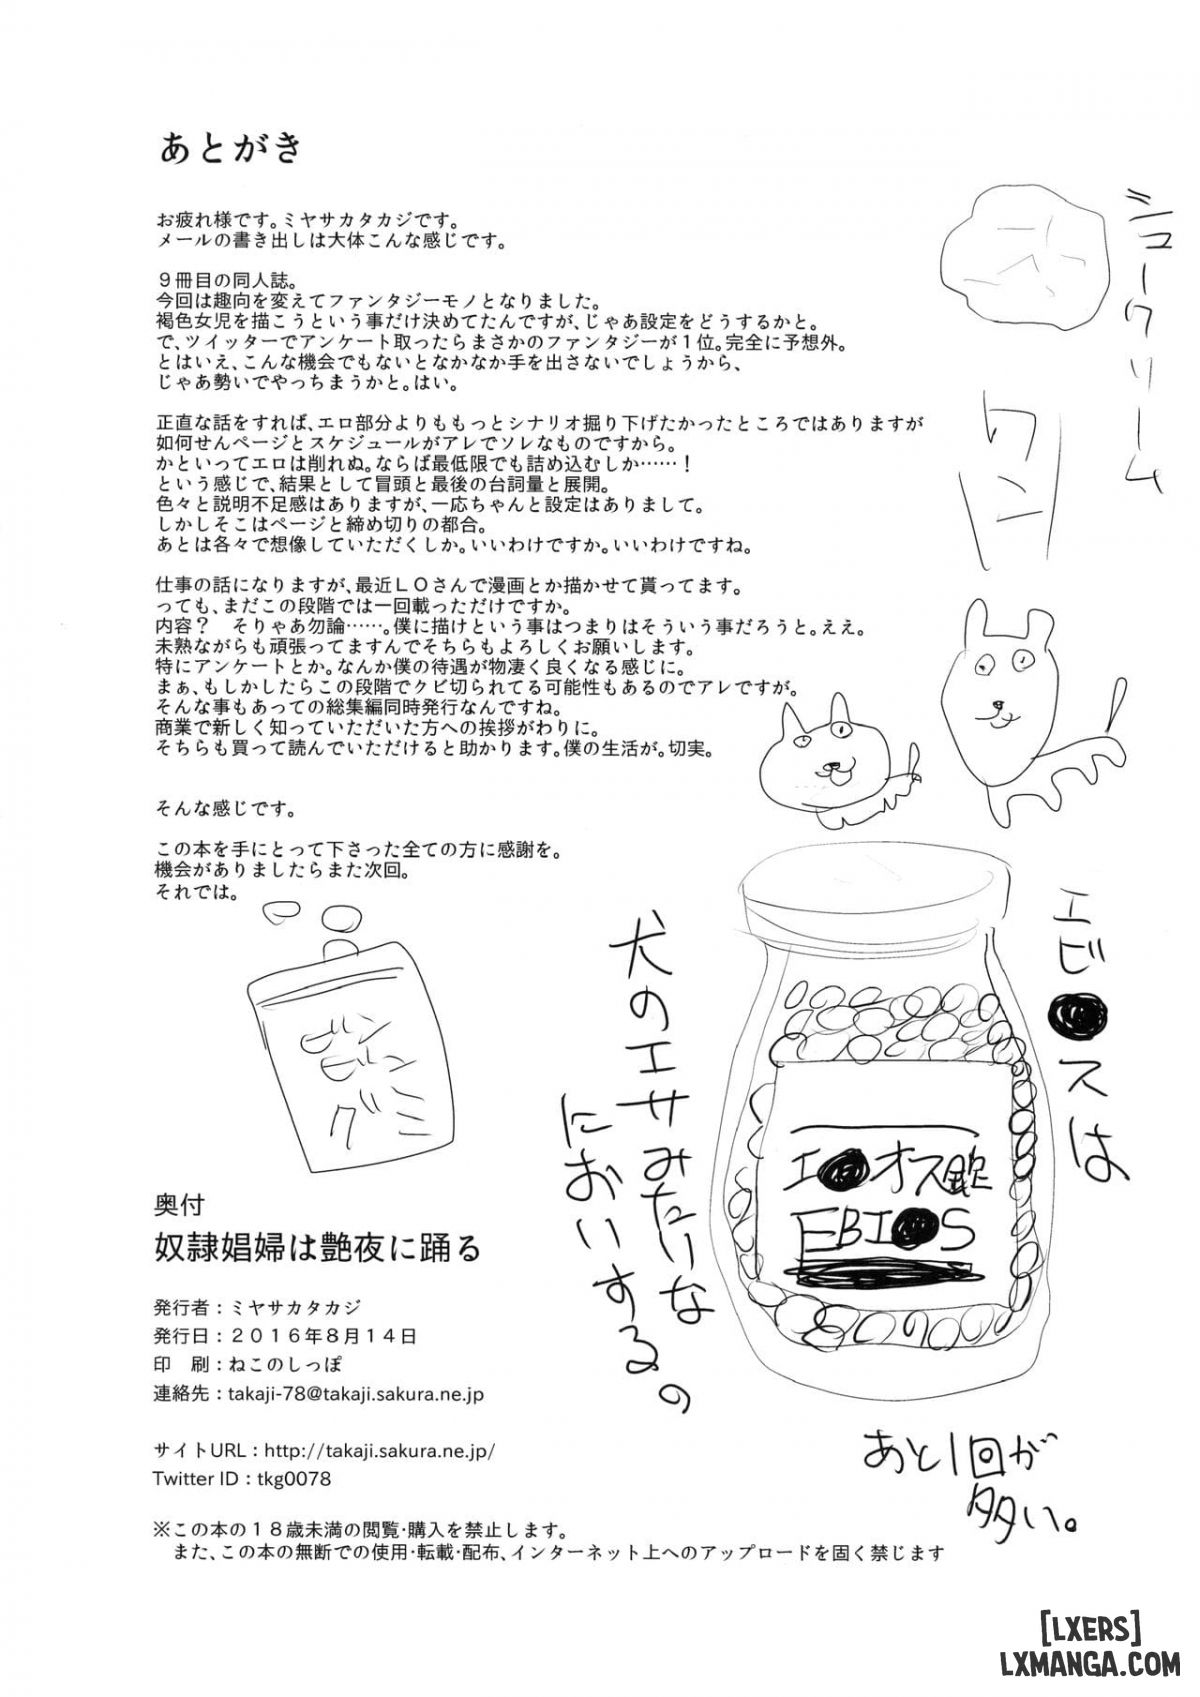 あとがき
お疲れ様です。ミヤサカタカジです。
メールの書き出しは大体こんな感じです。
９冊目の同人誌。
今回は趣向を変えてファンタジーモノとなりました。
褐色女児を描こうという事だけ決めてたんですが、じゃあ設定をどうするかと。
で、ツイッターでアンケート取ったらまさかのファンタジーが１位。完全に予想外。
とはいえ、こんな機会でもないとなかなか手を出さないでしょうから、
じゃあ勢いでやっちまうかと。はい。
正直な話をすれば、エロ部分よりももっとシナリオ掘り下げたかったところではありますが
如何せんページとスケジュールがアレでソレなものですから。
かといってエロは削れぬ。ならば最低限でも詰め込むしか……！
という感じで、結果として冒頭と最後の台詞量と展開。
色々と説明不足感はありますが、一応ちゃんと設定はありまして。
しかしそこはページと締め切りの都合。
あとは各々で想像していただくしか。いいわけですか。いいわけですね。
仕事の話になりますが、最近ＬＯさんで漫画とか描かせて貰ってます。
っても、まだこの段階では一回載っただけですか。
内容？　そりゃあ勿論……。僕に描けという事はつまりはそういう事だろうと。ええ。
未熟ながらも頑張ってますんでそちらもよろしくお願いします。
特にアンケートとか。なんか僕の待遇が物凄く良くなる感じに。
まぁ、もしかしたらこの段階でクビ切られてる可能性もあるのでアレですが。
そんな事もあっての総集編同時発行なんですね。
商業で新しく知っていただいた方への挨拶がわりに。
そちらも買って読んでいただけると助かります。僕の生活が。切実。
そんな感じです。
この本を手にとって下さった全ての方に感謝を。
機会がありましたらまた次回。
それでは。
シュークリーム
ワン
エビ●スは
犬のエサみたいな
においするの
エ●オス錠
EBI●S
あと1回が
多い。
グミ
奥付
奴隷娼婦は艶夜に踊る
発行者：ミヤサカタカジ
発行日：２０１６年８月１４日
印　刷：ねこのしっぽ
連絡先：takaji-78@takaji.sakura.ne.jp
サイトURL：http://takaji.sakura.ne.jp/
Twitter ID：tkg0078
※この本の１８歳未満の閲覧・購入を禁止します。
また、この本の無断での使用・転載・配布、インターネット上へのアップロードを固く禁じます
[LXERS]
LXMANGA.COM